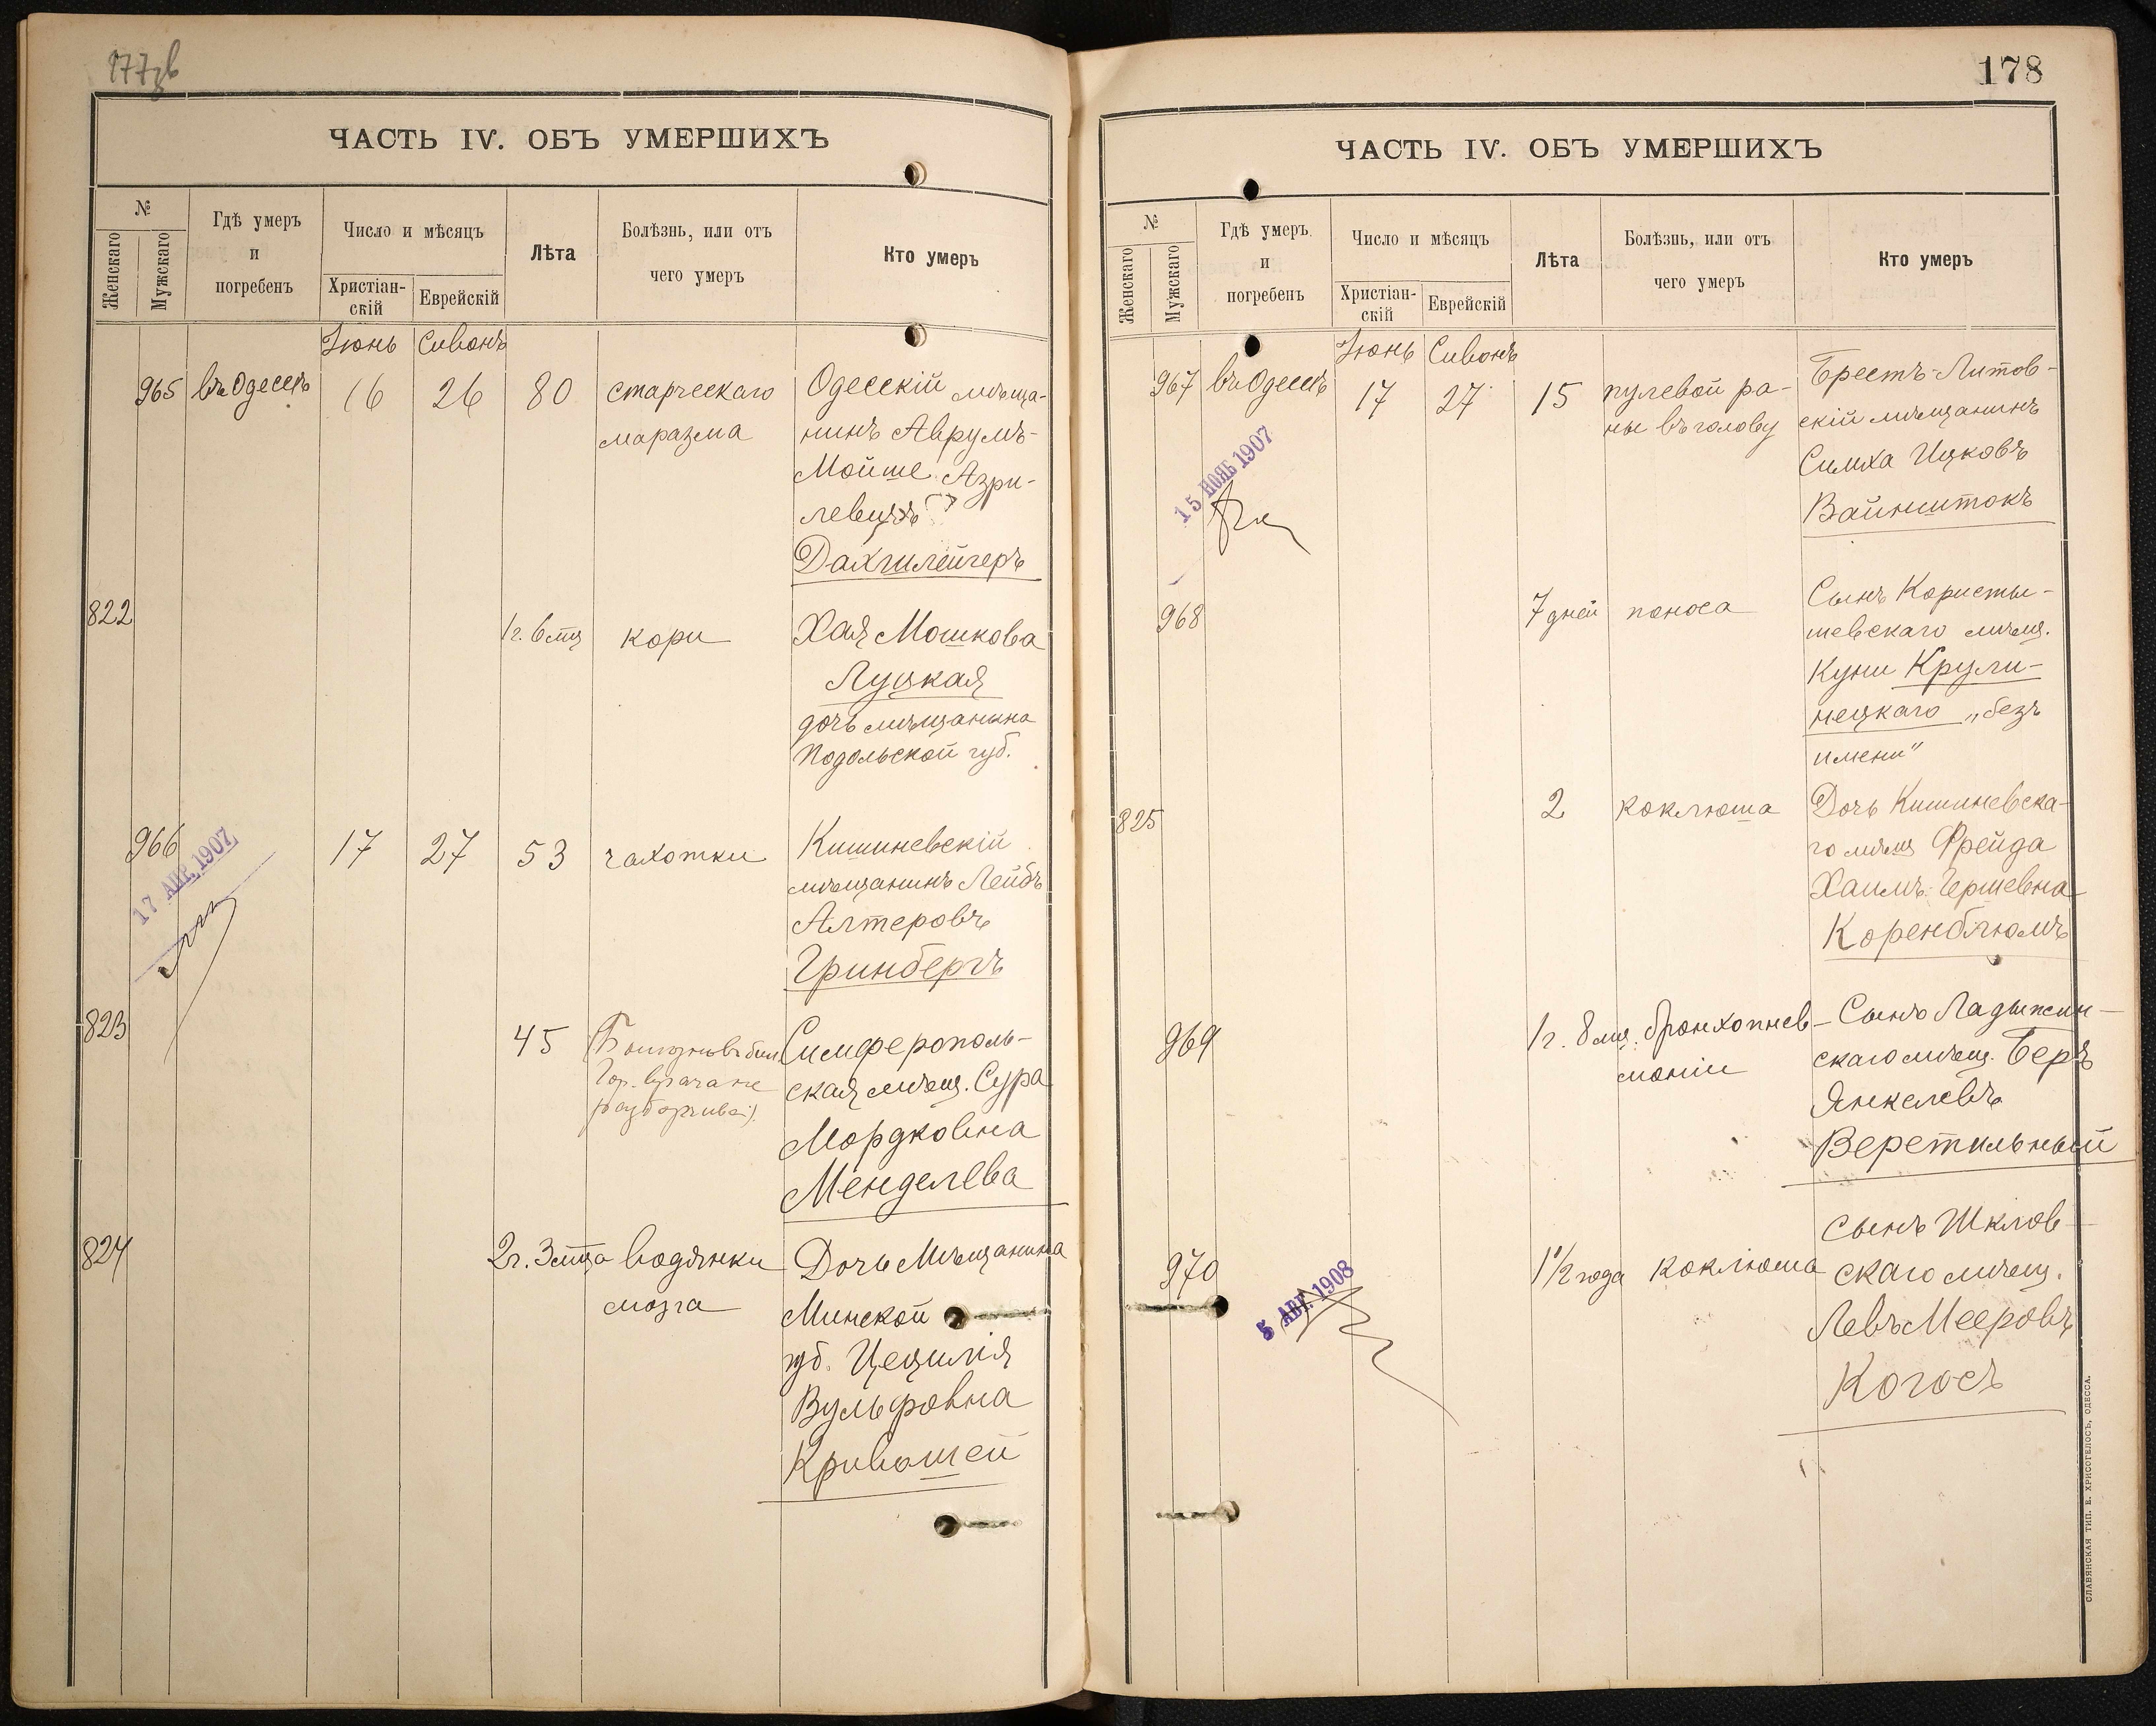 177зв
ЧАСТЬ IV. ОБЪ УМЕРШИХЪ
№
Женскаго
Мужскаго
Гдѣ умеръ
и
погребенъ
Число и мѣсяцъ
Христіан-
скій
Еврейскій
Лѣта
Болѣзнь, или отъ
чего умеръ
Кто умеръ
Іюнь Сивонъ
965 въ Одессѣ 16 26 80 старческаго Одесскій мѣща-
маразма нинъ Аврумъ-
Мойше Азри-
левичъ
Дахшлейгеръ
822 1г. 6 мц кори Хая Мошкова
Луцкая
дочь мѣщанина
Подольской губ.
966 17 27 53 чахотки Кишиневскій
17 АПР. 1907
мѣщанинъ Лейбъ
Алтеровъ
Гринбергъ
823 45 Симферополь-
Гор. врача не ская мѣщ. Сура
разборчива) Мордковна
Менделева
824 2г. 3 мца водянки Дочь Мѣщанина
мозга Минской
губ. Цецилія
Вульфовна
Кривошей
178
ЧАСТЬ IV. ОБЪ УМЕРШИХЪ
№
Женскаго
Мужскаго
Гдѣ умеръ
и
погребенъ
Число и мѣсяцъ
Христіан-
скій
Еврейскій
Лѣта
Болѣзнь, или отъ
чего умеръ
Кто умеръ
Іюнь Сивонъ
967 въ Одессѣ 17 27 15 пулевой ра- Брестъ-Литов-
ны въ голову скій мѣщанинъ
15 НОЯБ 1907
Симха Ицковъ
Вайнштокъ
968 7 дней поноса Сынъ Користы-
шевскаго мѣщ.
Куни Крули-
нецкаго „безъ
имени"
825 2 коклюша Дочь Кишиневска-
го мѣщ Фрейда
Хаимъ-Гершевна
Коренблюмъ
969 1г. 8 мц. бронхопнев- Сынъ Ладыжин-
моніи скаго мѣщ. Беръ
Янкелевъ
Веретильный
970 1 1/2 года коклюша Сынъ Шклов-
5 АВГ. 1908
скаго мѣщ.
Левъ Мееровъ
Когосъ
СЛАВЯНСКАЯ ТИП. Е. ХРИСОГЕЛОСЪ, ОДЕССА.